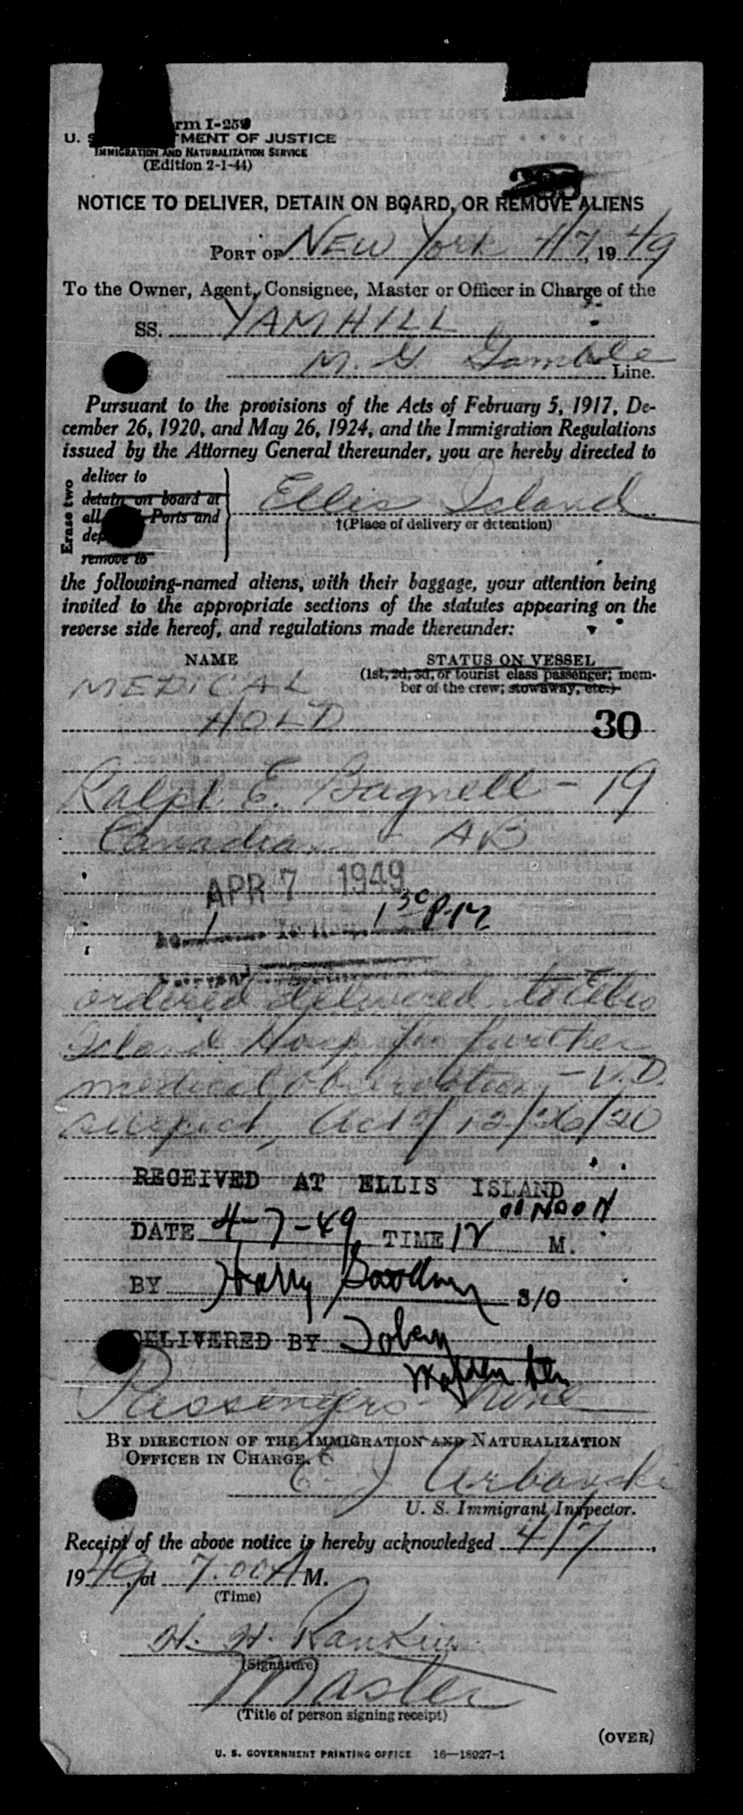 Form I-259
U. S. DEPARTMENT OF JUSTICE
IMMIGRATION AND NATURALIZATION SERVICE
(Edition 2-1-44)
NOTICE TO DELIVER, DETAIN ON BOARD, OR REMOVE ALIENS
PORT OF NEW York 4/7, 1949
To the Owner, Agent, Consignee, Master or Officer in Charge of the
SS. YAMHILL
M. G. Gamble Line.
Pursuant to the provisions of the Acts of February 5, 1917, De-
cember 26, 1920, and May 26, 1924, and the Immigration Regulations
issued by the Attorney General thereunder, you are hereby directed to
Erase two
deliver to
detain on board at
all Ports and
remove to
Ellis Island
†(Place of delivery or detention)
the following-named aliens, with their baggage, your attention being
invited to the appropriate sections of the statutes appearing on the
reverse side hereof, and regulations made thereunder:
NAME
STATUS ON VESSEL
(1st, 2d, 3d, or tourist class passenger; mem-
ber of the crew; stowaway, etc.)
MEDICAL
HOLD
30
Ralph E. Bagnell - 19
Canadian - AB
APR 7 1949
1 30 PM
ordered delivered to Ellis
Island Hosp for further
medical observation - V.D.
suspect, Act 12/26/20
RECEIVED AT ELLIS ISLAND
DATE 4-7-49 TIME 12 00 NOON M.
BY Harry S/O
DELIVERED BY Tobey
Passengers - None
BY DIRECTION OF THE IMMIGRATION AND NATURALIZATION
OFFICER IN CHARGE.
C J Urbanski
U. S. Immigrant Inspector.
Receipt of the above notice is hereby acknowledged 4/7,
1949, at 7:00 A M.
(Time)
H. H. Rankin
(Signature)
Master
(Title of person signing receipt)
(OVER)
U. S. GOVERNMENT PRINTING OFFICE 16—18027-1